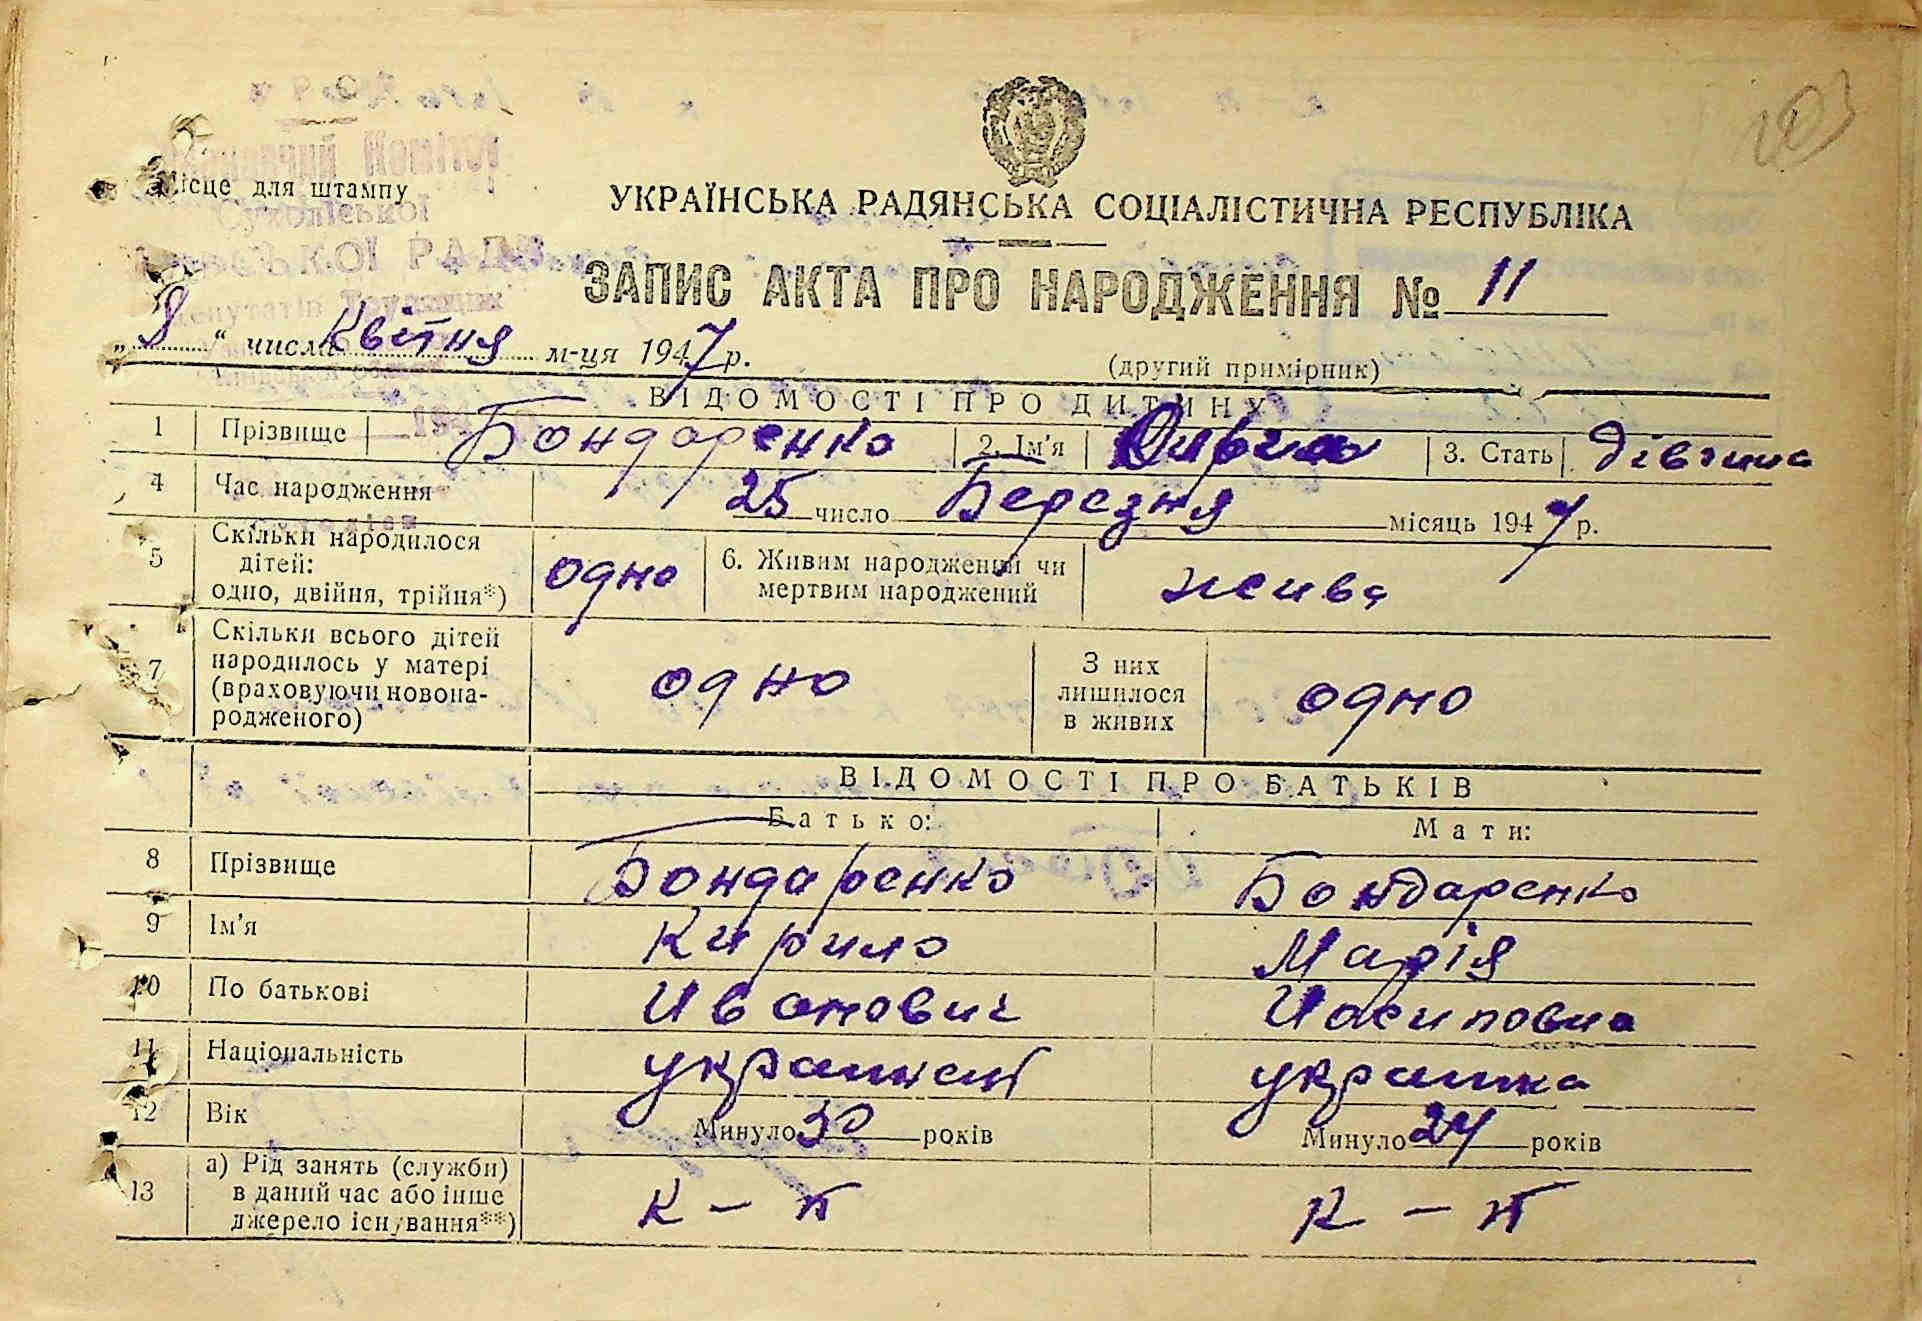 103
Виконавчий Комітет
Місце для штампу
Сухоліської
УКРАЇНСЬКА РАДЯНСЬКА СОЦІАЛІСТИЧНА РЕСПУБЛІКА
СЬКОЇ РАДИ
ЗАПИС АКТА ПРО НАРОДЖЕННЯ № 11
депутатів Трудящих
„8“ числа Квітня м-ця 1947 р.
(другий примірник)
ВІДОМОСТІ ПРО ДИТИНУ
1 Прізвище Бондаренко 2. Ім'я 3. Стать дівчина
4 Час народження 25 число Березня місяць 1947 р.
5 Скільки народилося
дітей:
одно, двійня, трійня*) одно 6. Живим народжений чи
мертвим народжений жива
7 Скільки всього дітей
народилось у матері
(враховуючи новона-
родженого) одно З них
лишилося
в живих одно
ВІДОМОСТІ ПРО БАТЬКІВ
Батько: Мати:
8 Прізвище Бондаренко Бондаренко
9 Ім'я Кирило Марія
10 По батькові Иванович Иосиповна
11 Національність украинець украинка
12 Вік Минуло 30 років Минуло 24 років
13 а) Рід занять (служби)
в даний час або інше
джерело існування**) к – п к – п